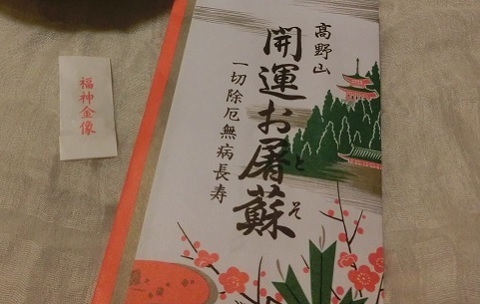 高野山
開運お屠蘇
とそ
一切除厄無病長寿
福神金像